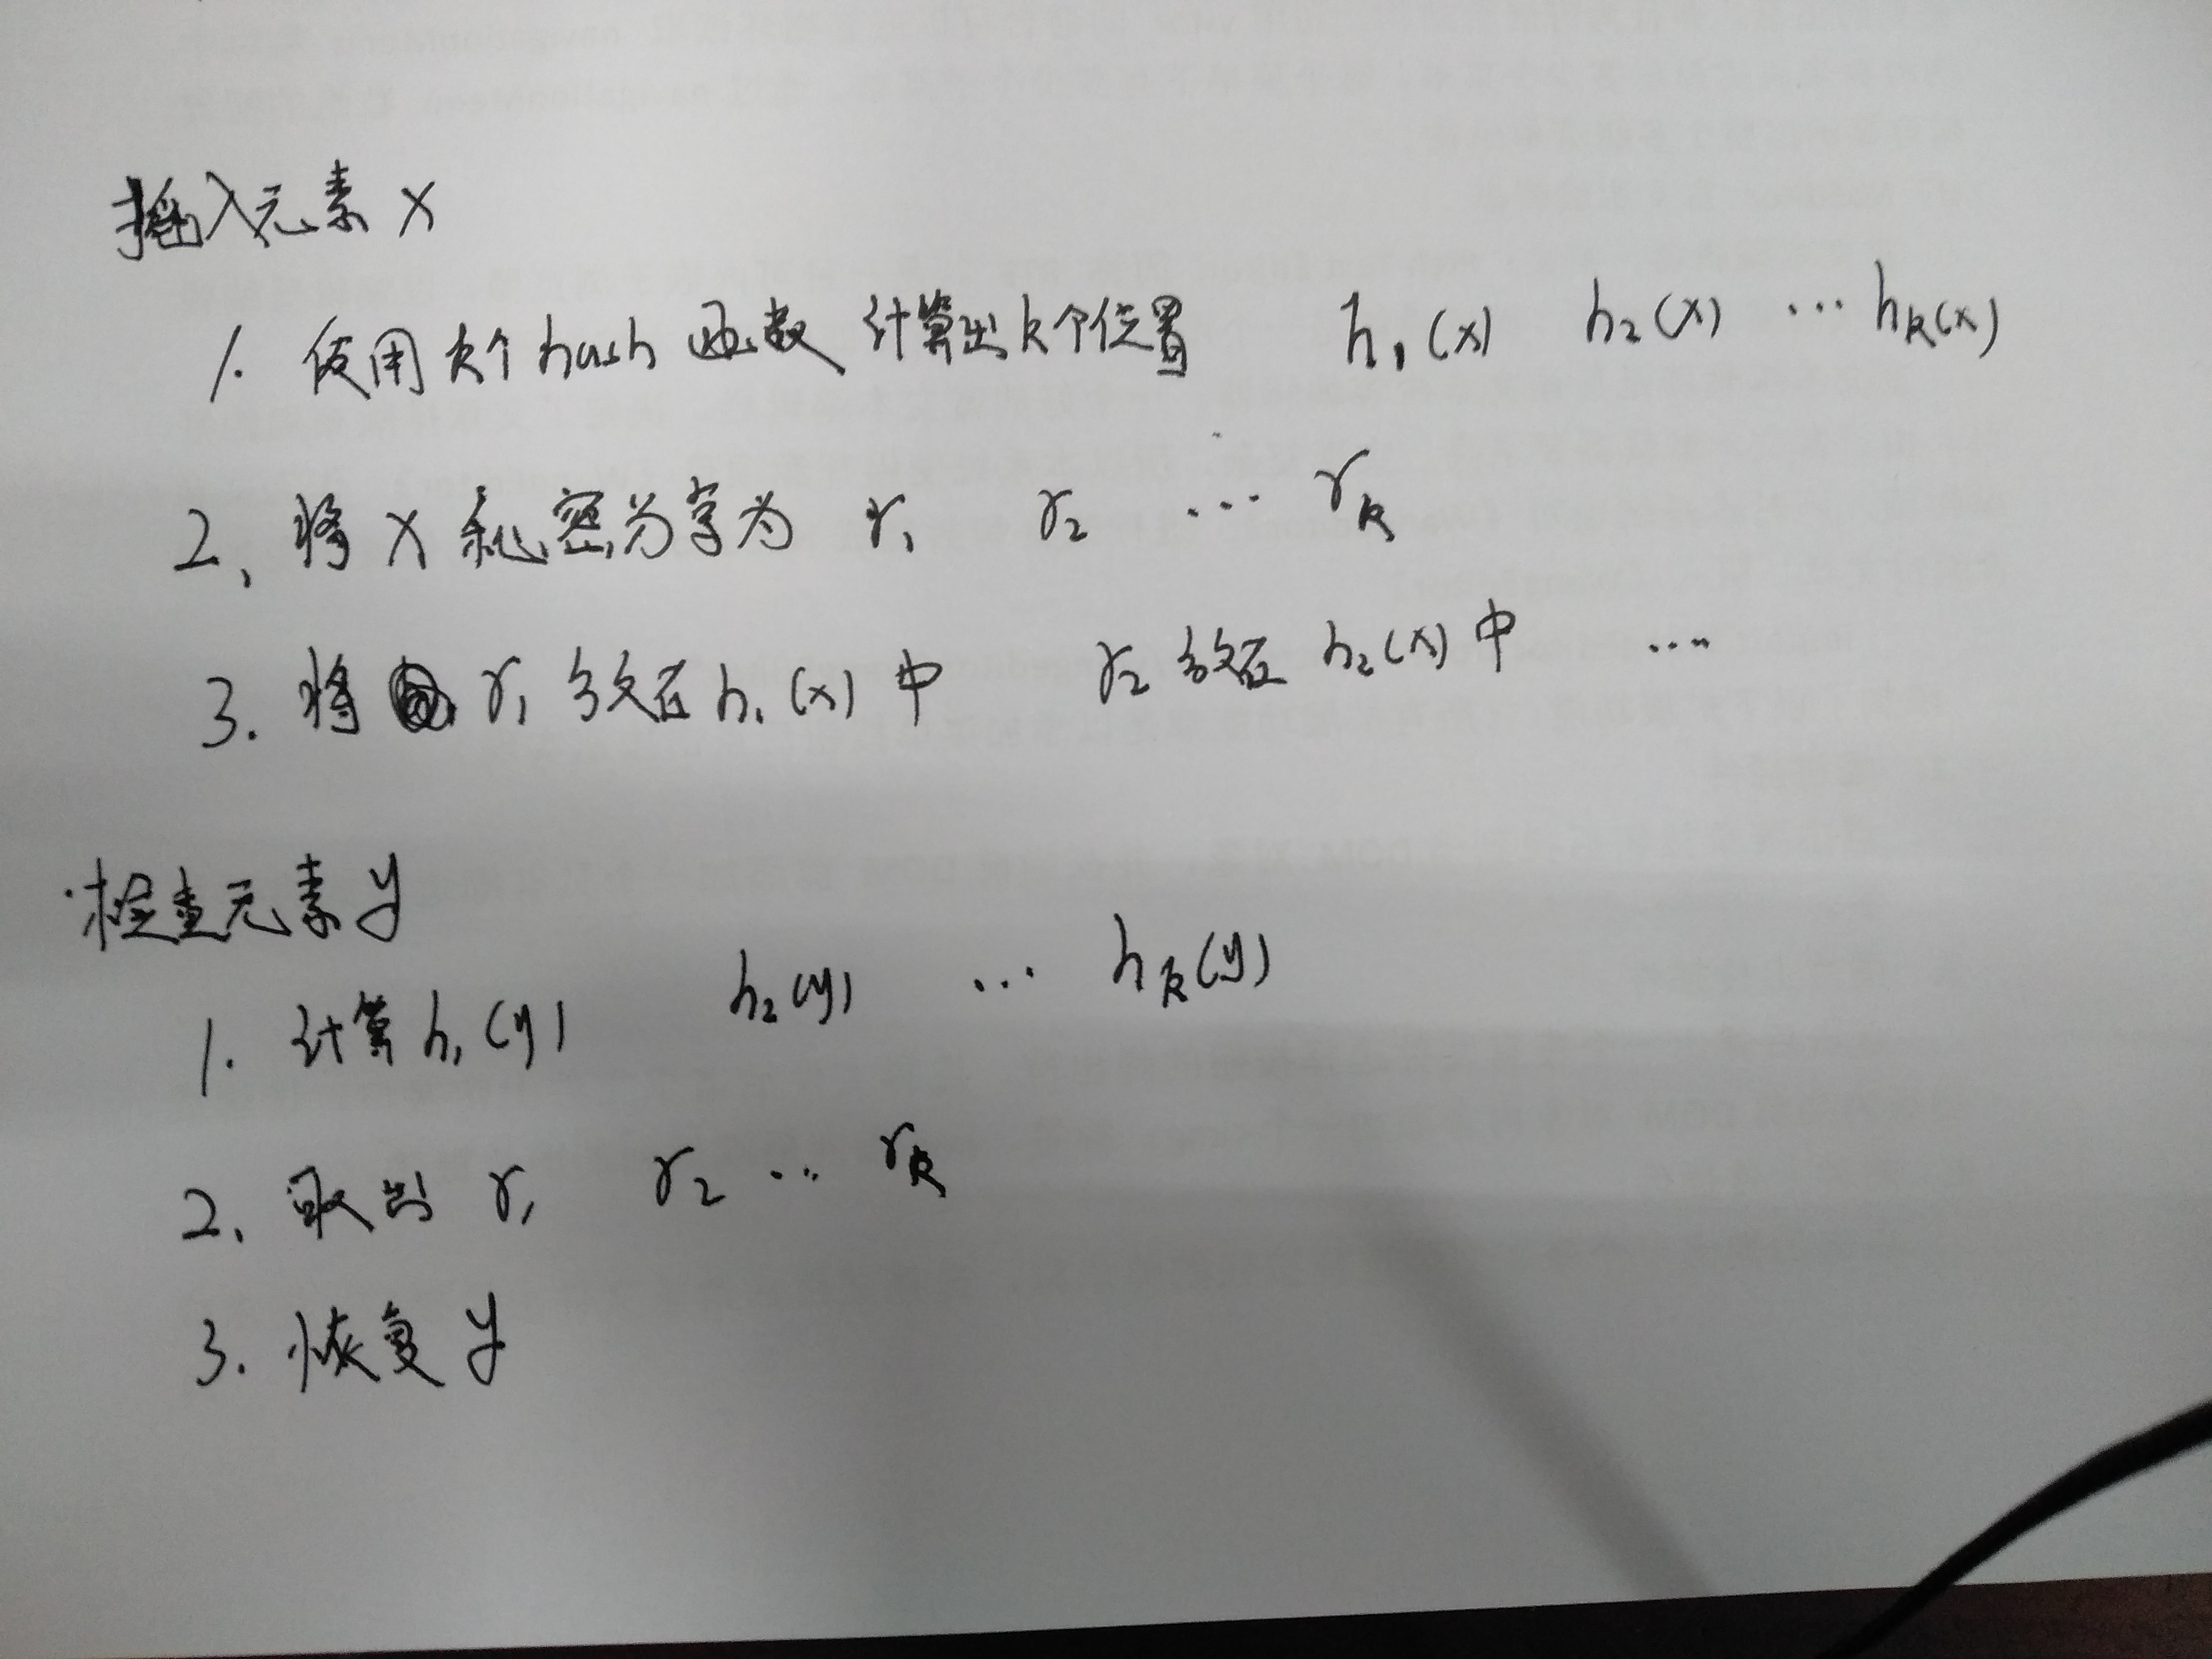 插入元素 x
1. 使用 k个 hash 函数 计算出 k个位置 h₁(x) h₂(x) … hₖ(x)
2、将 x 秘密分享为 r₁ r₂ … rₖ
3. 将 r₁ 放在 h₁(x) 中 r₂ 放在 h₂(x) 中 …
检查元素 y
1. 计算 h₁(y) h₂(y) … hₖ(y)
2、取出 r₁ r₂ … rₖ
3. 恢复 y